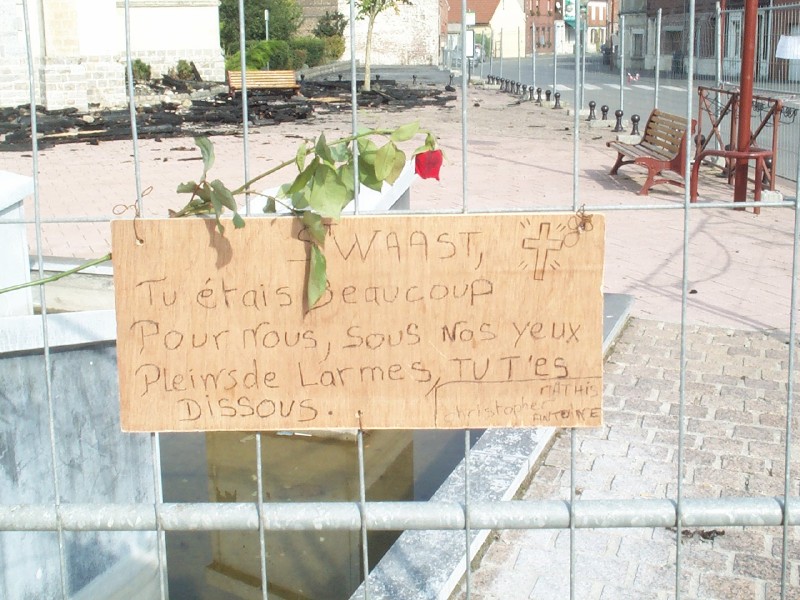 ST WAAST,
Tu étais Beaucoup
Pour Nous, Sous Nos yeux
Pleins de Larmes, TU T'es
Dissous.
MATHIS
christopher
ANTOINE